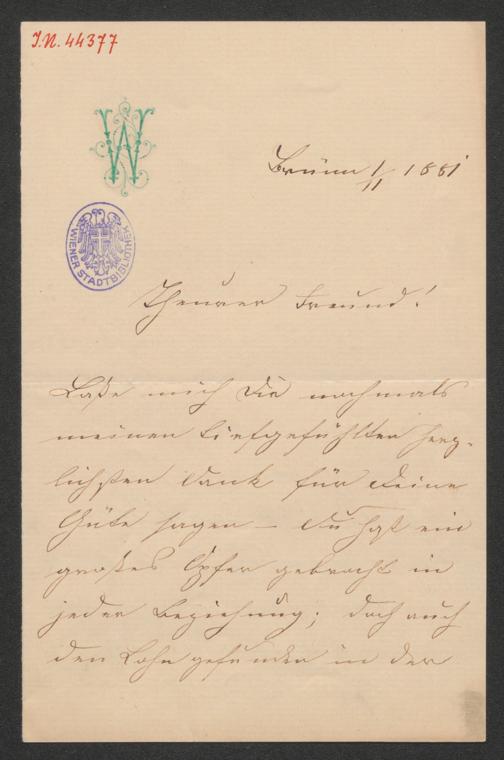 I.N. 44377
W
Brünn 1/11 1881
WIENER STADTBIBLIOTHEK
Theurer Freund!
Laße mich Dir nochmals
meinen tiefgefühlten herz-
lichsten Dank für Deine
Güte sagen – Du hast ein
großes Opfer gebracht in
jeder Beziehung; doch auch
den Lohn gefunden in der